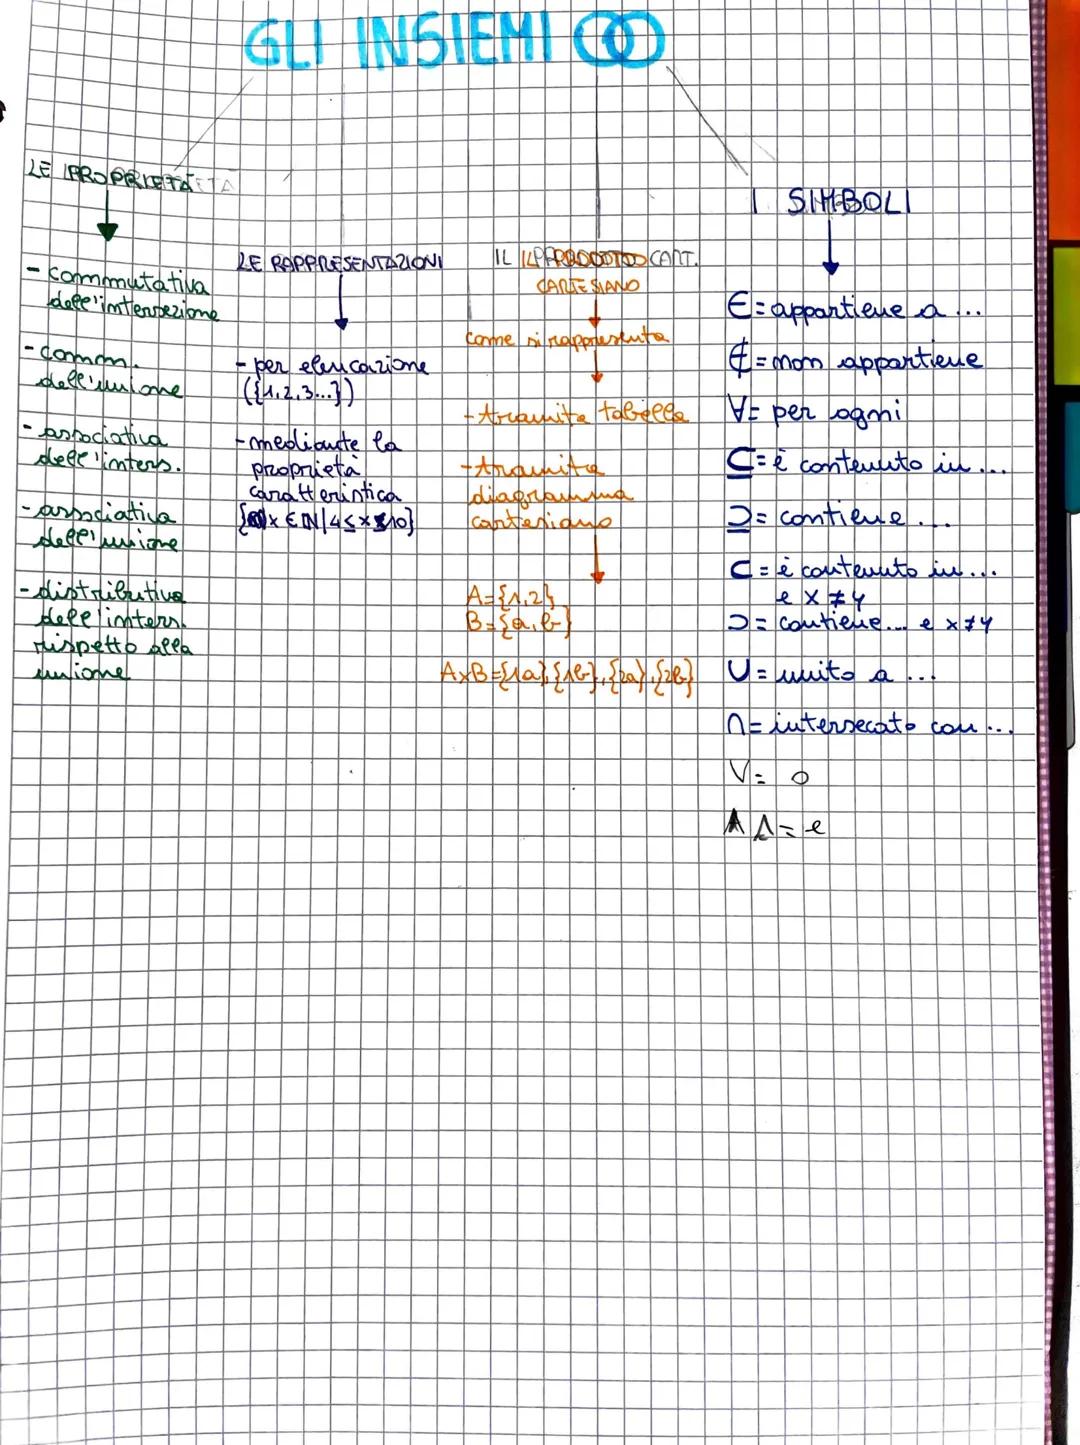 GLI INSIEMI
LE PROPRIETÀ
- commutativa
dell'intersezione
- comm.
dell'unione
- associativa
dell'inters.
- associativa
dell'unione
- distributiva
dell'inters.
rispetto alla
unione
LE RAPPRESENTAZIONI
- per elencazione
({1,2,3...})
- mediante la
proprietà
caratteristica
{x ∈ IN | 4 ≤ x ≤ 10}
IL PRODOTTO CART.
CARTESIANO
come si rappresenta
- tramite tabella
- tramite
diagramma
cartesiano
A={1,2}
B={a,b}
A×B={1a},{1b},{2a},{2b}
I SIMBOLI
∈ = appartiene a ...
∉ = non appartiene
∀ = per ogni
⊆ = è contenuto in ...
⊇ = contiene ...
⊂ = è contenuto in ...
e x ≠ y
⊃ = contiene ... e x ≠ y
U = unito a ...
∩ = intersecato con ...
V = o
Λ = e